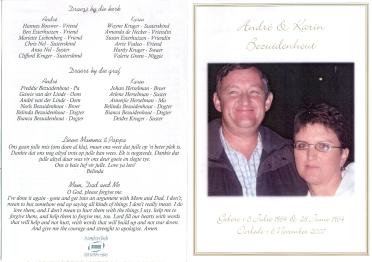 Draers by die kerk
André
Hannes Brouwer - Vriend
Ben Esterhuizen - Vriend
Mariette Labenberg - Vriend
Chris Nel - Susterskind
Anna Nel - Suster
Clifford Kruger - Susterskind
Karin
Wayne Kruger - Susterskind
Amanda de Necker - Vriendin
Susan Esterhuizen - Vriendin
Arrie Vosloo - Vriend
Hardy Kruger - Swaer
Valerie Green - Niggie
Draers by die graf
André
Freddie Bezuidenhout - Pa
Gawie van der Linde - Oom
André van der Linde - Oom
Niels Bezuidenhout - Broer
Belinda Bezuidenhout - Dogter
Bianca Bezuidenhout - Dogter
Karin
Johan Herselman - Broer
Arlene Herselman - Suster
Annetjie Herselman - Ma
Belinda Bezuidenhout - Dogter
Bianca Bezuidenhout - Dogter
Deidre Kruger - Suster
Liewe Mamma & Pappa
Ons gaan julle mis (om dom al bly), maar ons weet dat julle op 'n beter plek is.
Dankie dat ons nog altyd trots op julle kan wees. Ek is nugter. Dankie dat
julle altyd daar was vir ons deur goeie en slegte tye.
Ons is baie lief vir julle. Love ya lots!
Belinda
Mom, Dad and Me
O God, please forgive me.
I've done it again - gone and got into an argument with Mom and Dad. I don't
mean to but somehow end up saying all kinds of things I don't really mean. I do
love them, and I don't mean to hurt them with the things I say, help me to
forgive them, and help them to forgive me, too. Lord fill our hearts with words
that will help and not hurt, with words that will build up and not tear down.
And give me the courage and strength to apologise. Amen
André & Karin
Bezuidenhout
Gebore : 5 Julie 1954 & 28 Junie 1954
Oorlede : 6 November 2007